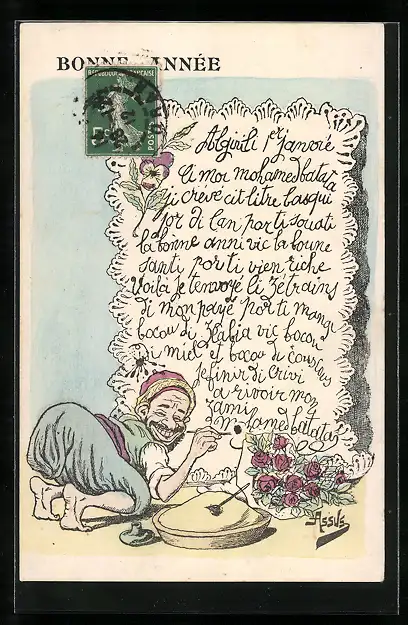 BONNE ANNÉE
REPUBLIQUE FRANÇAISE
5c
POSTES
Algirili 1er janvoié
Ci moi mohamedbatata
ji crévé cit litre basqui
jor di lan par ti souati
la bonne anni vic la boune
santi por ti vien riche
Voilà je t'envoyé li zétrains
di mon payé por ti mangi
bocou di Zlabia vic bocou
di miel et bocou di couscous
Je finir di crivi
a rivoir mon
zami
mohamedbatata
Assus